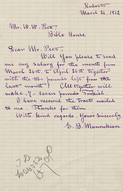 March 26, 1912
Mr. W. W. Peet
Bible House
Dear Mr. Peet
Will you please to send
me my salary for the month from
March 20th to April 20th together
with the two pounds left from the
last month? (All together will
make up seven pounds Turkish.
I have received the treat mailed
to me. Thanks for them.
With kind regards Yours sincerely